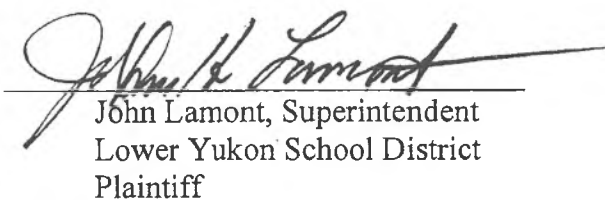 John H Lamont
John Lamont, Superintendent
Lower Yukon School District
Plaintiff